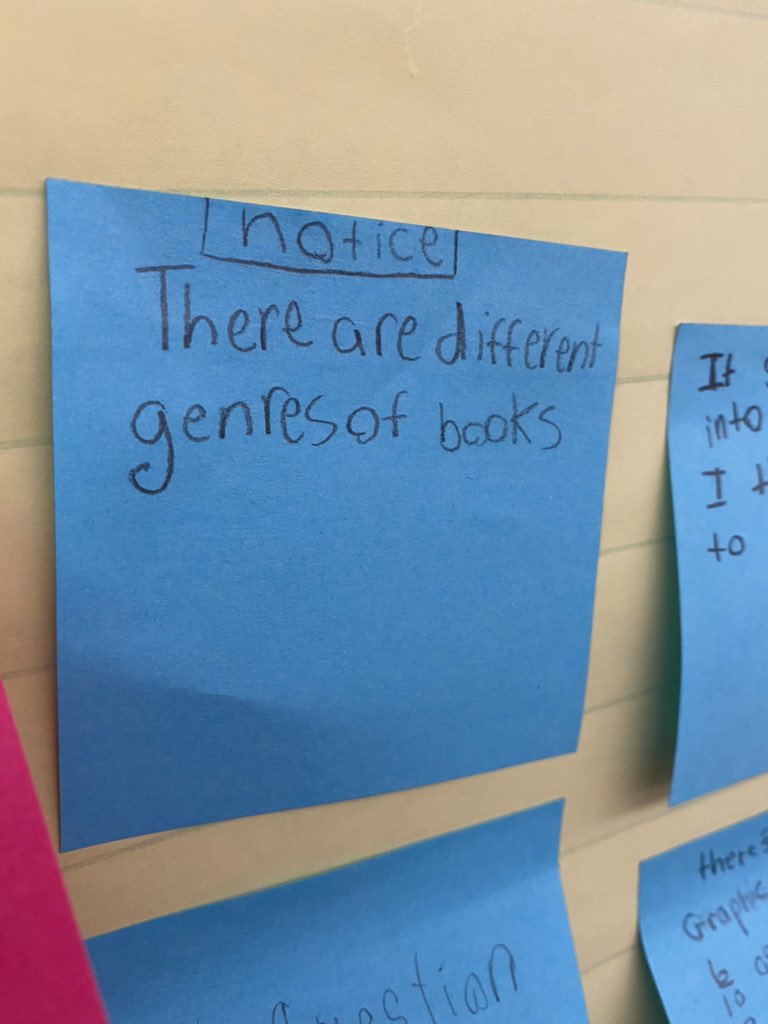 notice
There are different
genres of books
It
into
I
to
Question
there's
Graphic